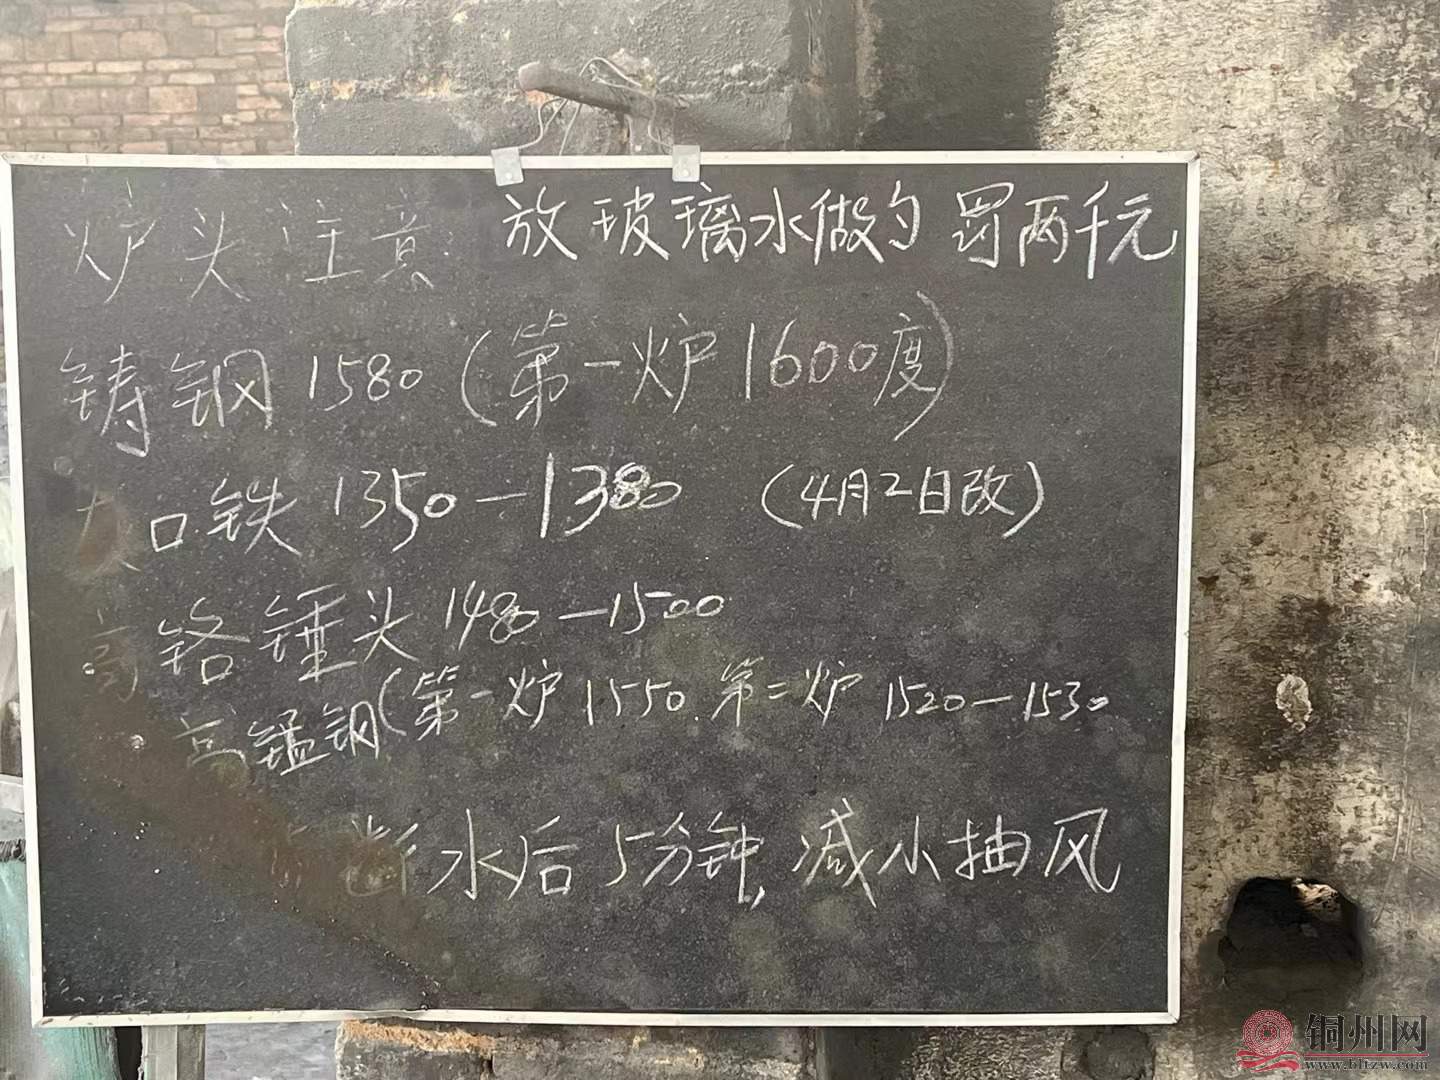 炉头注意 放玻璃水做勺 罚两千元
铸钢 1580 (第一炉1600度)
灰口铁 1350—1380 (4月2日改)
高铬锤头 1480—1500
高锰钢(第一炉1550.第二炉 1520—1530
断水后5分钟,减小抽风
铜州网
www.bltzw.com